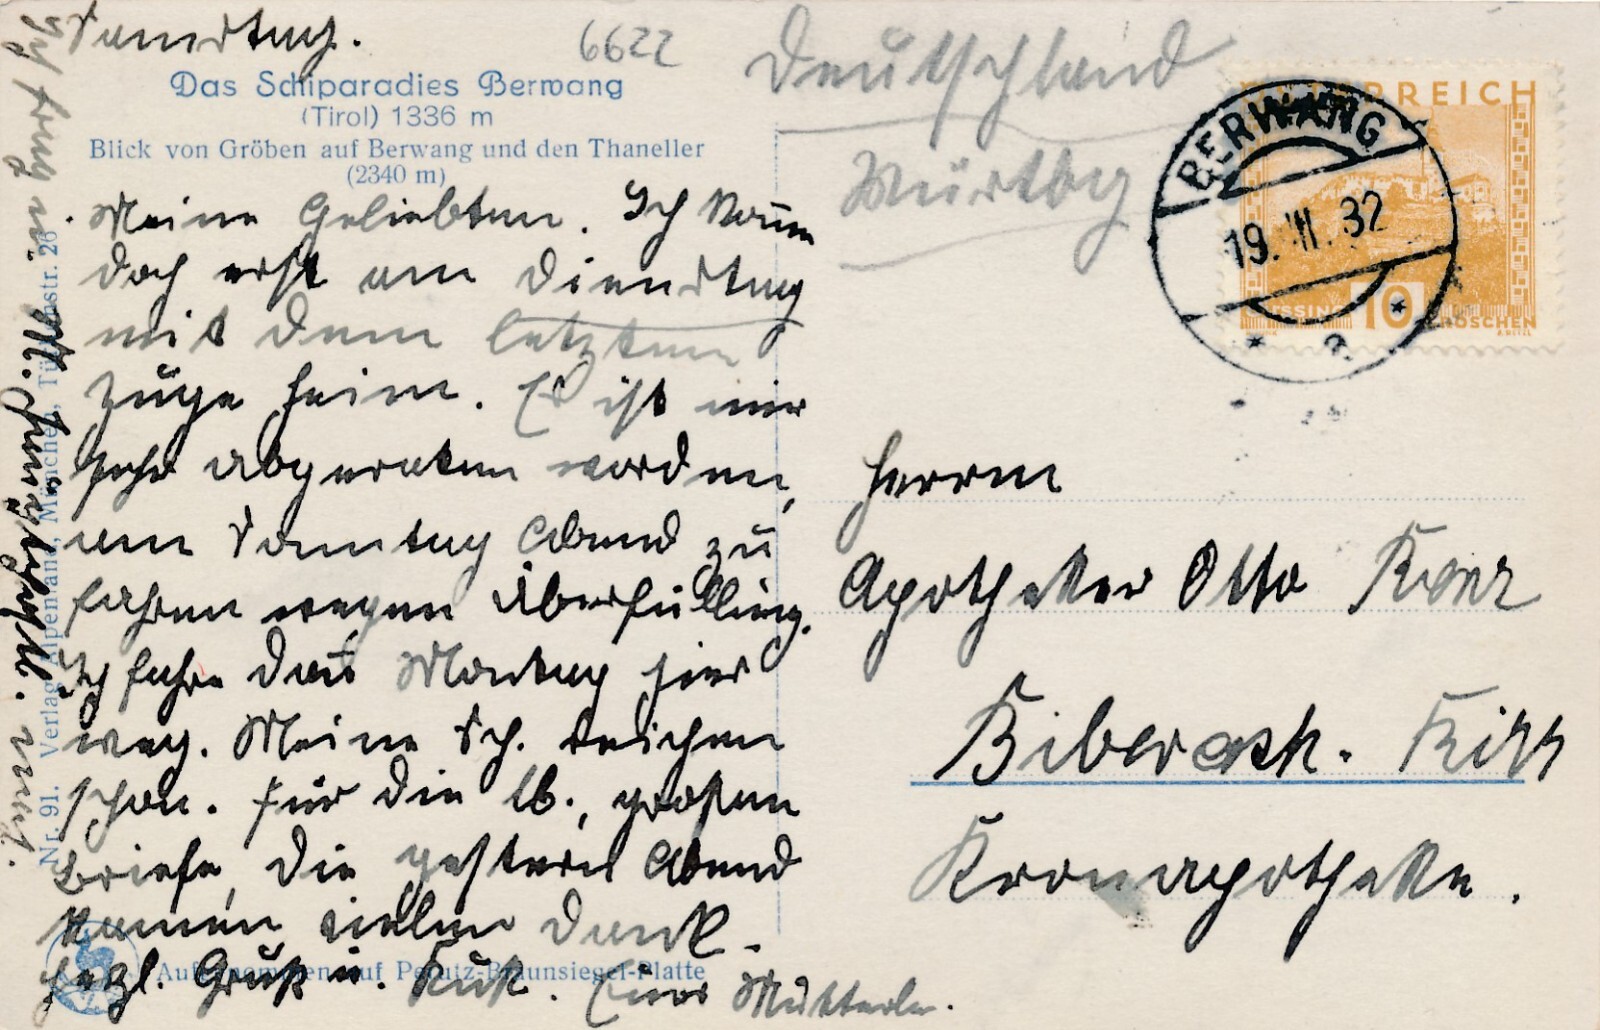 Samstag.
6622
Das Schiparadies Berwang
(Tirol) 1336 m
Blick von Gröben auf Berwang und den Thaneller
(2340 m)
Meine Geliebten. Ich komme
doch erst am Dienstag
mit dem letzten
Zuge heim. Es ist mir
sehr abgeraten worden,
am Sonntag Abend zu
fahren wegen Überfüllung.
Ich fahre das Montag hier
weg. Meine Sch. reichen
schon. Für die lb., großen
Briefe, die gestern Abend
kamen vielen Dank.
Herzl. Gruß u. Kuß. Euer Mutterle.
Nr. 91. Verlag Alpenland, München, Türkenstr. 26
Aufgenommen auf Perutz-Braunsiegel-Platte
Deutschland
Würtbg
ÖSTERREICH
GÜSSING 10 GROSCHEN
BERWANG
19. III. 32
* a *
Herrn
Apotheker Otto
Biberach. Riss
Kronapotheke.